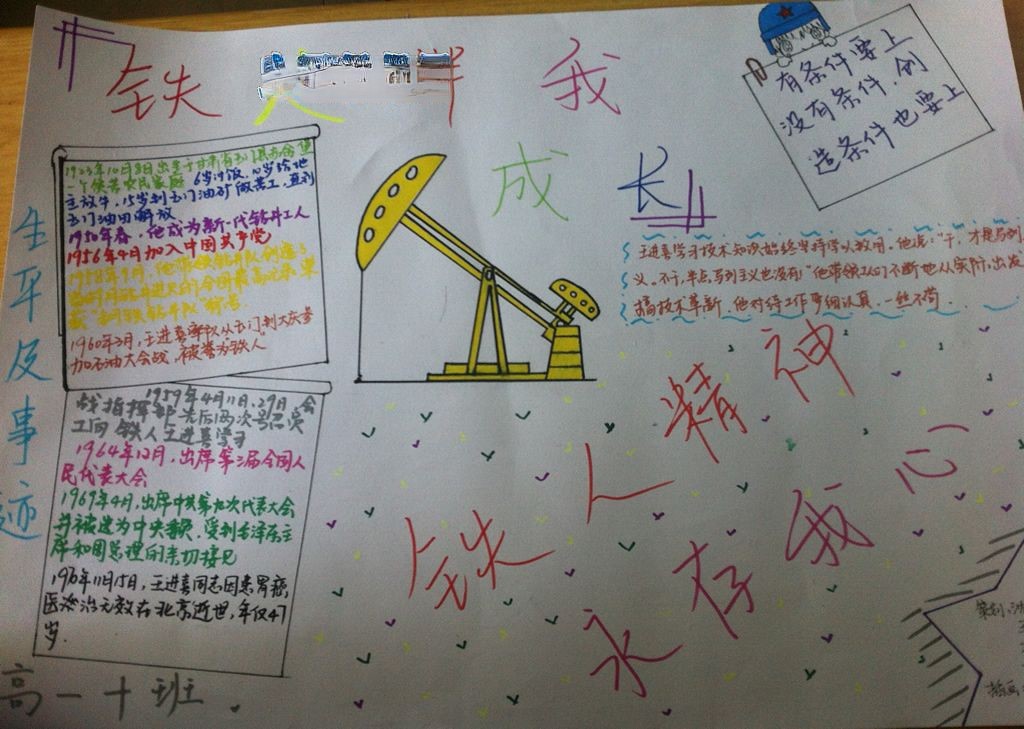 铁人伴我
成长
有条件要上
没有条件,创
造条件也要上
生平及事迹
1923年10月8日出生于甘肃省玉门县赤金堡
一个贫苦农民家庭 6岁讨饭,10岁给地
主放牛,15岁到玉门油矿做苦工,直到
玉门油田解放
1950年春,他成为新一代钻井工人
1956年4月加入中国共产党
1958年9月,他带领钻井队创造了
当时月钻井进尺的全国最高纪录 荣
获"钢铁钻井队"称号
1960年3月,王进喜率队从玉门到大庆参
加石油大会战,被誉为"铁人"
1959年4月11日、29日,会
战指挥部先后两次号召员
工向"铁人王进喜学习
1964年12月,出席第三届全国人
民代表大会
1969年4月,出席中共第九次代表大会
并被选为中央委员,受到毛泽东主
席和周总理的亲切接见
1970年11月15日,王进喜同志因患胃癌,
医治无效在北京逝世,年仅47
岁.
王进喜学习技术知识始终坚持学以致用。他说:"干,才是马列主
义。不干,半点马列主义也没有!"他带领队们不断地从实际出发
搞技术革新 他对待工作严细认真,一丝不苟.
铁人精神
永存我心
高一十班.
策划:
插画